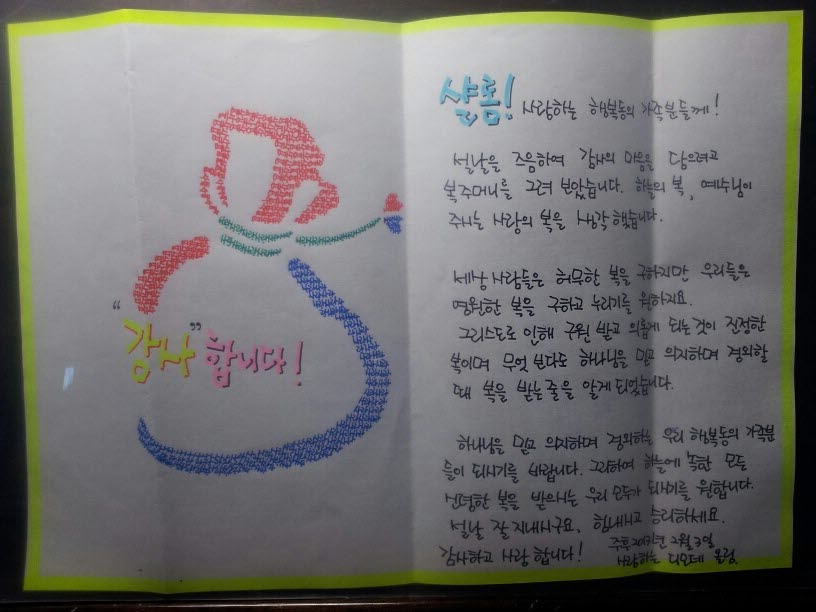 “감사”합니다!
샬롬! 사랑하는 행복동의 가족분들께!
설날을 즈음하여 감사의 마음을 담으려고
복주머니를 그려 보았습니다. 하늘의 복, 예수님이
주시는 사랑의 복을 생각 했습니다.
세상 사람들은 허무한 복을 구하지만 우리들은
영원한 복을 구하고 누리기를 원하지요.
그리스도로 인해 구원 받고 의롭게 되는것이 진정한
복이며 무엇 보다도 하나님을 믿고 의지하며 경외할
때 복을 받는 줄을 알게 되었습니다.
하나님을 믿고 의지하며 경외하는 우리 행복동의 가족분
들이 되시기를 바랍니다. 그리하여 하늘에 속한 모든
신령한 복을 받으시는 우리 모두가 되시기를 원합니다.
설날 잘 지내시구요, 힘내시고 승리하세요.
감사하고 사랑 합니다!
주후 년 2월 3일
사랑하는 디모데 올림.